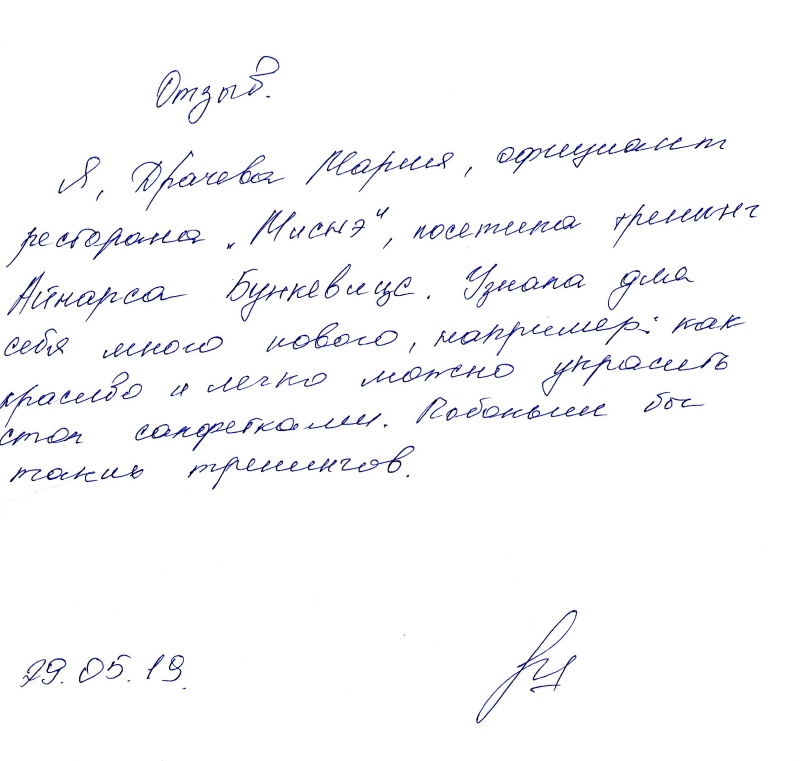 Отзыв.
Я, Драчева Мария, официант
ресторана „Миснэ", посетила тренинг
Айнарса Бункевицс. Узнала для
себя много нового, например: как
красиво и легко можно украсить
стол салфетками. Побольше бы
таких тренингов.
29.05.19.